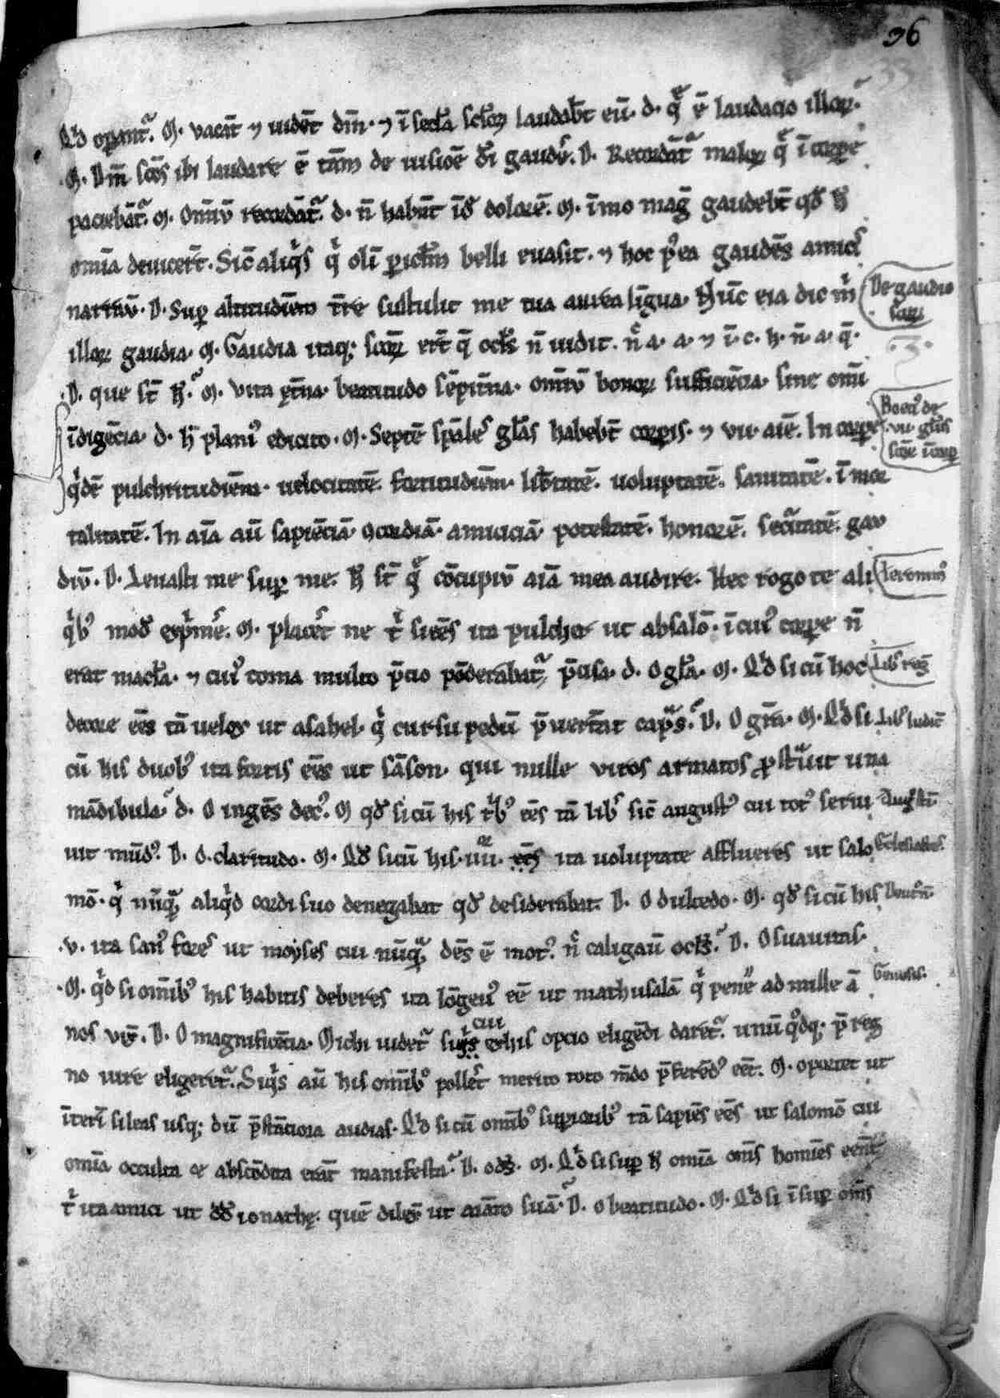 96
Qd̄ operant᷑. M. vacāt ⁊ uidēt dm̄. ⁊ ī secl̄a scl̄oꝝ laudab̄t eū. d. q̄ ē laudacio illoꝝ.
M. Dm̄ scōs ibi laudare ē tām de uisiōe dī gaudē. D. Recordāt᷑ maloꝝ q̄ ī corpe
paciebāt᷑. M. Omīū recordāt᷑. d. n̄ habūt īd̄ dolorē. M. īmo maḡ gaudebt̄ qd̄ h̄
omīa deuicer̄t. Sic̄ aliq̄s q̄ olī pericl̄m belli euasit. ⁊ hoc p̄ea gaudēs amicꝭ
narrau. D. Super altitudinem tr̄re sustulit me tua aurea līgua. Nūc eia dic m̄
illoꝝ gaudia. M. Gaudia itaq; scōꝝ er̄t q̄ ocls̄ n̄ uidit. n̄ a. a. ⁊ ī. c. h. n̄. a. q̄.
.D. que st̄ h̄. M. vita et̄na. beatitudo sēpit̄na. omīū bonoꝝ sufficiēcia. sine omi
īdigēcia. d. h̄ planiꝰ edicito. M. Septē sp̄ales gl̄as habebt̄ corpis. ⁊ vii aīe. In corpe
q̄dē pulchritudinēm. uelocitatē. fortitudinēm. lib̄tatē. uoluptatē. sanitatē. īmor
talitatē. In aīa aū sapiēciā. ꝯcordiā. amiciciā. potestatē. honorē. secitatē. gau
diū. D. Leuasti me super me. h̄ st̄ q̄ cōcupiu aīa mea audire. Nec rogo te ali
q̄bꝰ modꝭ exprīme. M. placēt ne t̄ si eēs ita pulcher ut absalō. ī cuiꝰ corpe n̄
erat macl̄a. ⁊ cuiꝰ coma multo p̄cio pōderabat᷑ p̄cisa. d. O gl̄a. M. Qd̄ si cū hoc
decore eēs tā uelox ut asahel. q̄ cursu pedū p̄uertat cap̄s. D. O gr̄a. M. Qd̄ si
cū his duobꝰ ita fortis eēs ut sāson. qui mille viros armatos ꝓst̄uit una
mādibula. d. O ingēs decꝰ. M. qd̄ si cū his t̄bꝰ eēs tā lib̄ sic̄ augustꝰ cui totꝰ serui
uit mūdꝰ. D. O. claritudo. M. Qd̄ si cū his. iiii. eēs ita uoluptate afflueres ut salo
mō. q̄ nūq̄ aliq̄d cordi suo denegabat qd̄ desiderabat. D. O dulcedo. M. qd̄ si cū his
.v. ita sanꝰ fores ut moyses cui nūq̄ dēs ē motꝰ. n̄ caligaū ocls̄. D. O suauitas.
.M. q̄d si omībꝰ his habitis deberes ita lōgeuꝰ eē ut mathusalā q̄ pene ad mille ā
nos vix̄. D. O magnificēcia. Michi uidet᷑ siq̄s cui ex his opcio eligēdi daret᷑. unū q̄dq; p̄ reg
no iure eligeret᷑. Siq̄s aū his omībꝰ pollet̄ merito toto mdo p̄ferēdꝰ eēt. M. oportet ut
īterī sileas usq; dū p̄stācioia audias. Qd̄ si cū omībꝰ supioribꝰ tā sapiēs eēs ut salomō cui
omīa occulta et abscōdita erāt manifesta. D. M. Qd̄ si super h̄ omīa om̄s homīes eēnt
t̄ ita amici ut dd̄ ionathe. quē dilex̄ ut aīam suā. D. O beatitudo. M. Qd̄ si īsup om̄s
De gaudio
scōꝝ
.3.
Boeciꝰ de
.vii. gl̄iis
Ieronimꝰ
Lib̄ reḡ
Lib̄ iudicū
Augustī
Ecclesiastes
Deut̄nī
Genesis.